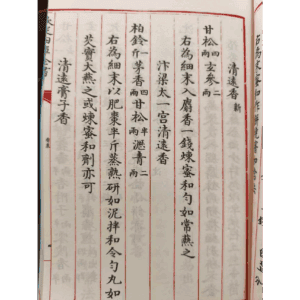 清遠香新
甘松四兩玄參二兩
右為細末入麝香一錢煉蜜和勻如常爇之
汴梁太一宮清遠香
柏鈴一斤茅香四兩甘松半兩瀝青二兩
右為細末以肥棗半斤蒸熟研如泥拌和令勻丸如
芡實大爇之或煉蜜和劑亦可
清遠膏子香
欽定四庫全書